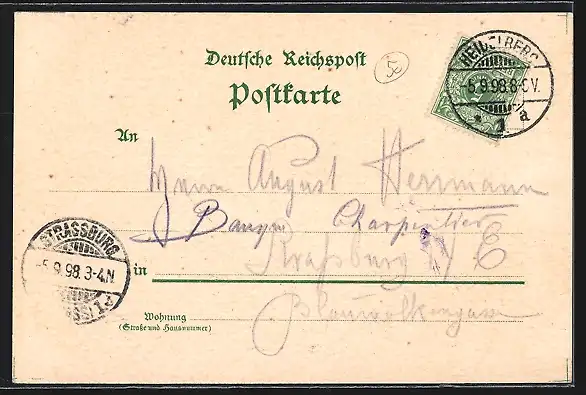 Deutsche Reichspost
Postkarte
5c
HEIDELBERG
5.9.98.8-9V.
* 1 a
An
Herrn August Herrmann
Banque Charpentier
STRASSBURG
5.9.98.3-4N
in Straßburg i/E
Blauwolkengasse
Wohnung
(Straße und Hausnummer)